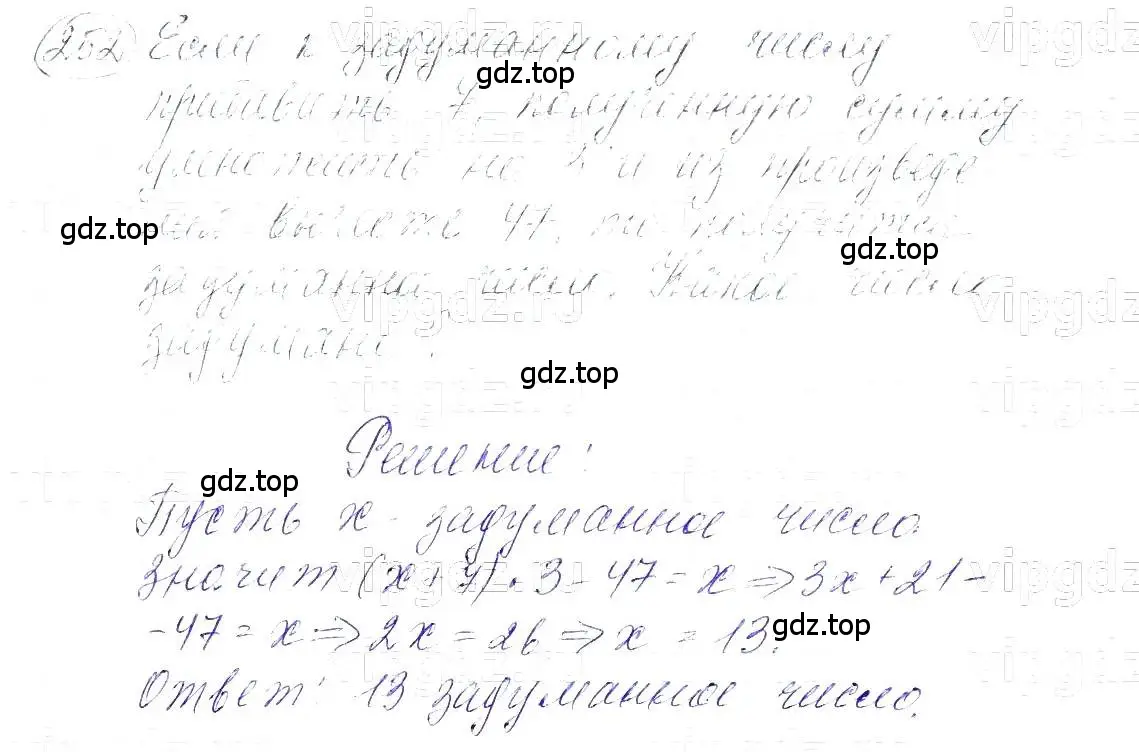 252 Если к задуманному числу
прибавить 7, полученную сумму
умножить на 3 и из произведе
ния вычесть 47, то получится
задуманно число. Какое число
задумано?
Решение:
Пусть x - задуманное число.
Значит (x+7)·3-47=x⇒3x+21-
-47=x⇒2x=26⇒x=13.
Ответ: 13 задуманное число.
gdz.top
gdz.top
gdz.top
gdz.top
gdz.top
gdz.top
vipgdz.ru